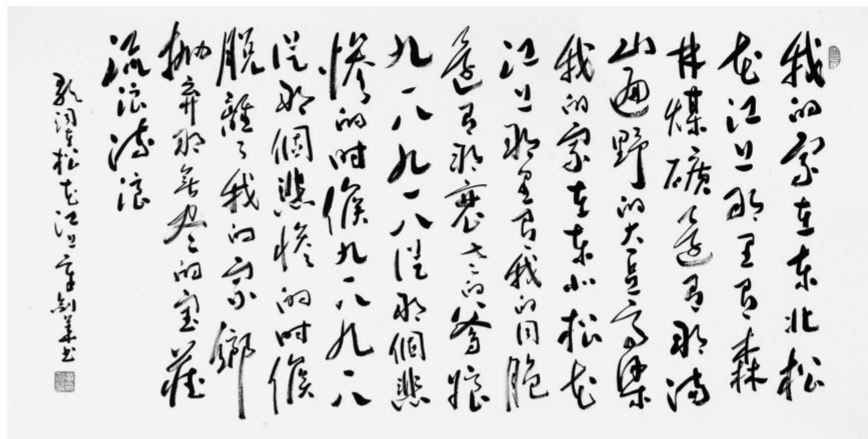 我的家在东北松
花江上那里有森
林煤礦還有那满
山遍野的大豆高粱
我的家在东北松花
江上那里有我的同胞
還有那衰老的爹娘
九一八九一八從那個悲
惨的时候九一八九一八
從那個悲惨的时候
脱離了我的家鄉
抛弃那無尽的宝藏
流浪流浪
歌词松花江上 剑 书